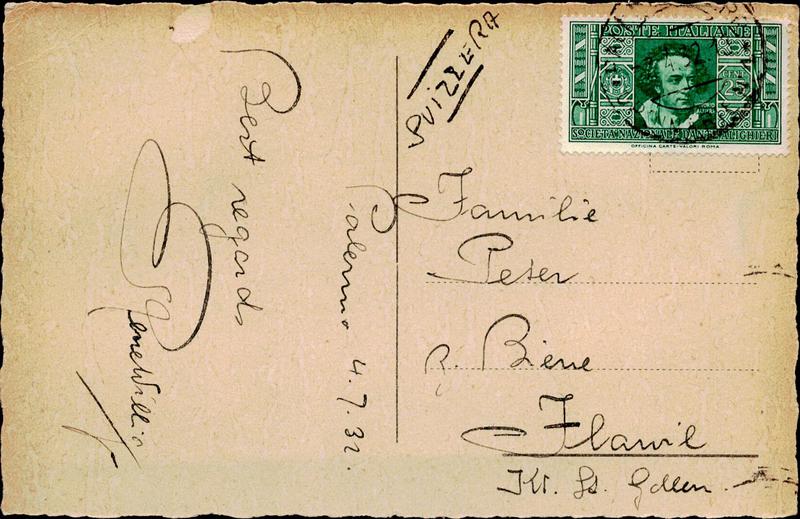 Best regards
Palermo 4.7.32.
SVIZZERA
POSTE ITALIANE
CENT
25
SOCIETÀ NAZIONALE DANTE ALIGHIERI
OFFICINA CARTE-VALORI ROMA
Familie
Peter
z. Biene
Flawil
Kt. St. Gallen.